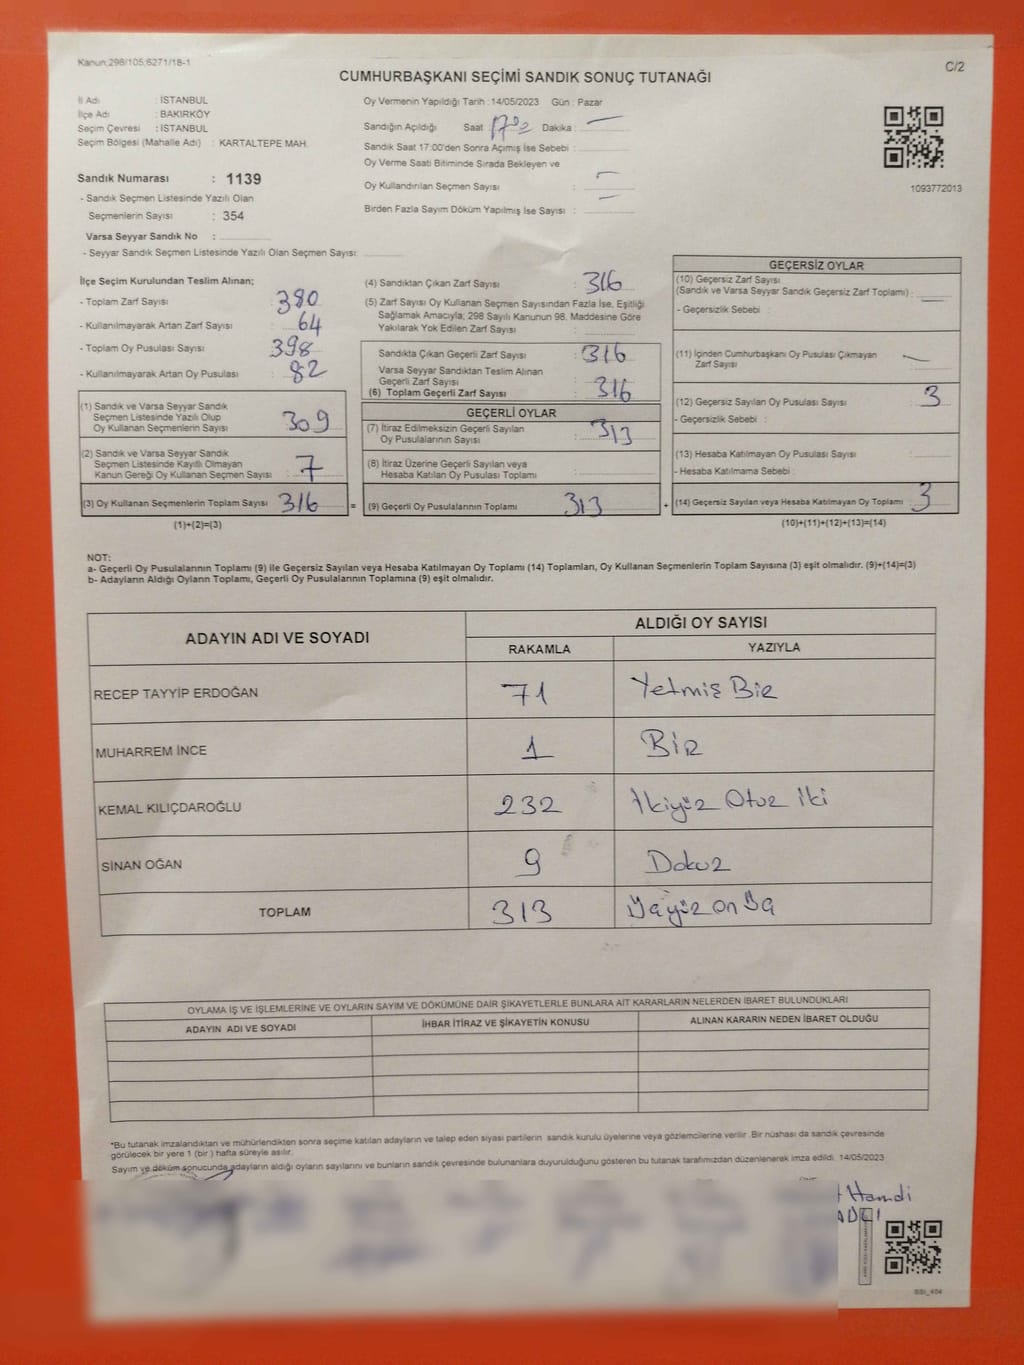 Kanun;298/105;6271/18-1
C/2
CUMHURBAŞKANI SEÇİMİ SANDIK SONUÇ TUTANAĞI
İl Adı : İSTANBUL
İlçe Adı : BAKIRKÖY
Seçim Çevresi : İSTANBUL
Seçim Bölgesi (Mahalle Adı) : KARTALTEPE MAH.
Sandık Numarası : 1139
- Sandık Seçmen Listesinde Yazılı Olan
Seçmenlerin Sayısı : 354
Varsa Seyyar Sandık No :
- Seyyar Sandık Seçmen Listesinde Yazılı Olan Seçmen Sayısı:
Oy Vermenin Yapıldığı Tarih :14/05/2023 Gün : Pazar
Sandığın Açıldığı Saat : Dakika :
Sandık Saat 17:00'den Sonra Açımış İse Sebebi :
Oy Verme Saati Bitiminde Sırada Bekleyen ve
Oy Kullandırılan Seçmen Sayısı :
Birden Fazla Sayım Döküm Yapılmış İse Sayısı :
1093772013
İlçe Seçim Kurulundan Teslim Alınan;
- Toplam Zarf Sayısı : 380
- Kullanılmayarak Artan Zarf Sayısı : 64
- Toplam Oy Pusulası Sayısı : 398
- Kullanılmayarak Artan Oy Pusulası : 82
(1) Sandık ve Varsa Seyyar Sandık
Seçmen Listesinde Yazılı Olup
Oy Kullanan Seçmenlerin Sayısı : 309
(2) Sandık ve Varsa Seyyar Sandık
Seçmen Listesinde Kayıtlı Olmayan
Kanun Gereği Oy Kullanan Seçmen Sayısı : 7
(3) Oy Kullanan Seçmenlerin Toplam Sayısı : 316 =
(1)+(2)=(3)
(4) Sandıktan Çıkan Zarf Sayısı : 316
(5) Zarf Sayısı Oy Kullanan Seçmen Sayısından Fazla İse, Eşitliği
Sağlamak Amacıyla; 298 Sayılı Kanunun 98. Maddesine Göre
Yakılarak Yok Edilen Zarf Sayısı :
Sandıkta Çıkan Geçerli Zarf Sayısı : 316
Varsa Seyyar Sandıktan Teslim Alınan
Geçerli Zarf Sayısı :
(6) Toplam Geçerli Zarf Sayısı : 316
GEÇERLİ OYLAR
(7) İtiraz Edilmeksizin Geçerli Sayılan
Oy Pusulalarının Sayısı : 313
(8) İtiraz Üzerine Geçerli Sayılan veya
Hesaba Katılan Oy Pusulası Toplamı :
(9) Geçerli Oy Pusulalarının Toplamı : 313 +
GEÇERSİZ OYLAR
(10) Geçersiz Zarf Sayısı
(Sandık ve Varsa Seyyar Sandık Geçersiz Zarf Toplamı) :
- Geçersizlik Sebebi :
(11) İçinden Cumhurbaşkanı Oy Pusulası Çıkmayan
Zarf Sayısı :
(12) Geçersiz Sayılan Oy Pusulası Sayısı : 3
- Geçersizlik Sebebi :
(13) Hesaba Katılmayan Oy Pusulası Sayısı :
- Hesaba Katılmama Sebebi :
(14) Geçersiz Sayılan veya Hesaba Katılmayan Oy Toplamı : 3
(10)+(11)+(12)+(13)=(14)
NOT:
a- Geçerli Oy Pusulalarının Toplamı (9) ile Geçersiz Sayılan veya Hesaba Katılmayan Oy Toplamı (14) Toplamları, Oy Kullanan Seçmenlerin Toplam Sayısına (3) eşit olmalıdır. (9)+(14)=(3)
b- Adayların Aldığı Oyların Toplamı, Geçerli Oy Pusulalarının Toplamına (9) eşit olmalıdır.
ADAYIN ADI VE SOYADI
ALDIĞI OY SAYISI
RAKAMLA YAZIYLA
RECEP TAYYİP ERDOĞAN 71 Yetmiş Bir
MUHARREM İNCE 1 Bir
KEMAL KILIÇDAROĞLU 232 İkiyüz Otuz iki
SİNAN OĞAN 9 Dokuz
TOPLAM 313 Üçyüz on Üç
OYLAMA İŞ VE İŞLEMLERİNE VE OYLARIN SAYIM VE DÖKÜMÜNE DAİR ŞİKAYETLERLE BUNLARA AİT KARARLARIN NELERDEN İBARET BULUNDUKLARI
ADAYIN ADI VE SOYADI İHBAR İTİRAZ VE ŞİKAYETİN KONUSU ALINAN KARARIN NEDEN İBARET OLDUĞU
*Bu tutanak imzalandıktan ve mühürlendikten sonra seçime katılan adayların ve talep eden siyasi partilerin sandık kurulu üyelerine veya gözlemcilerine verilir .Bir nüshası da sandık çevresinde
görülecek bir yere 1 (bir ) hafta süreyle asılır.
Sayım ve döküm sonucunda adayların aldığı oyların sayılarını ve bunların sandık çevresinde bulunanlara duyurulduğunu gösteren bu tutanak tarafımızdan düzenlenerek imza edildi. 14/05/2023
Hamdi